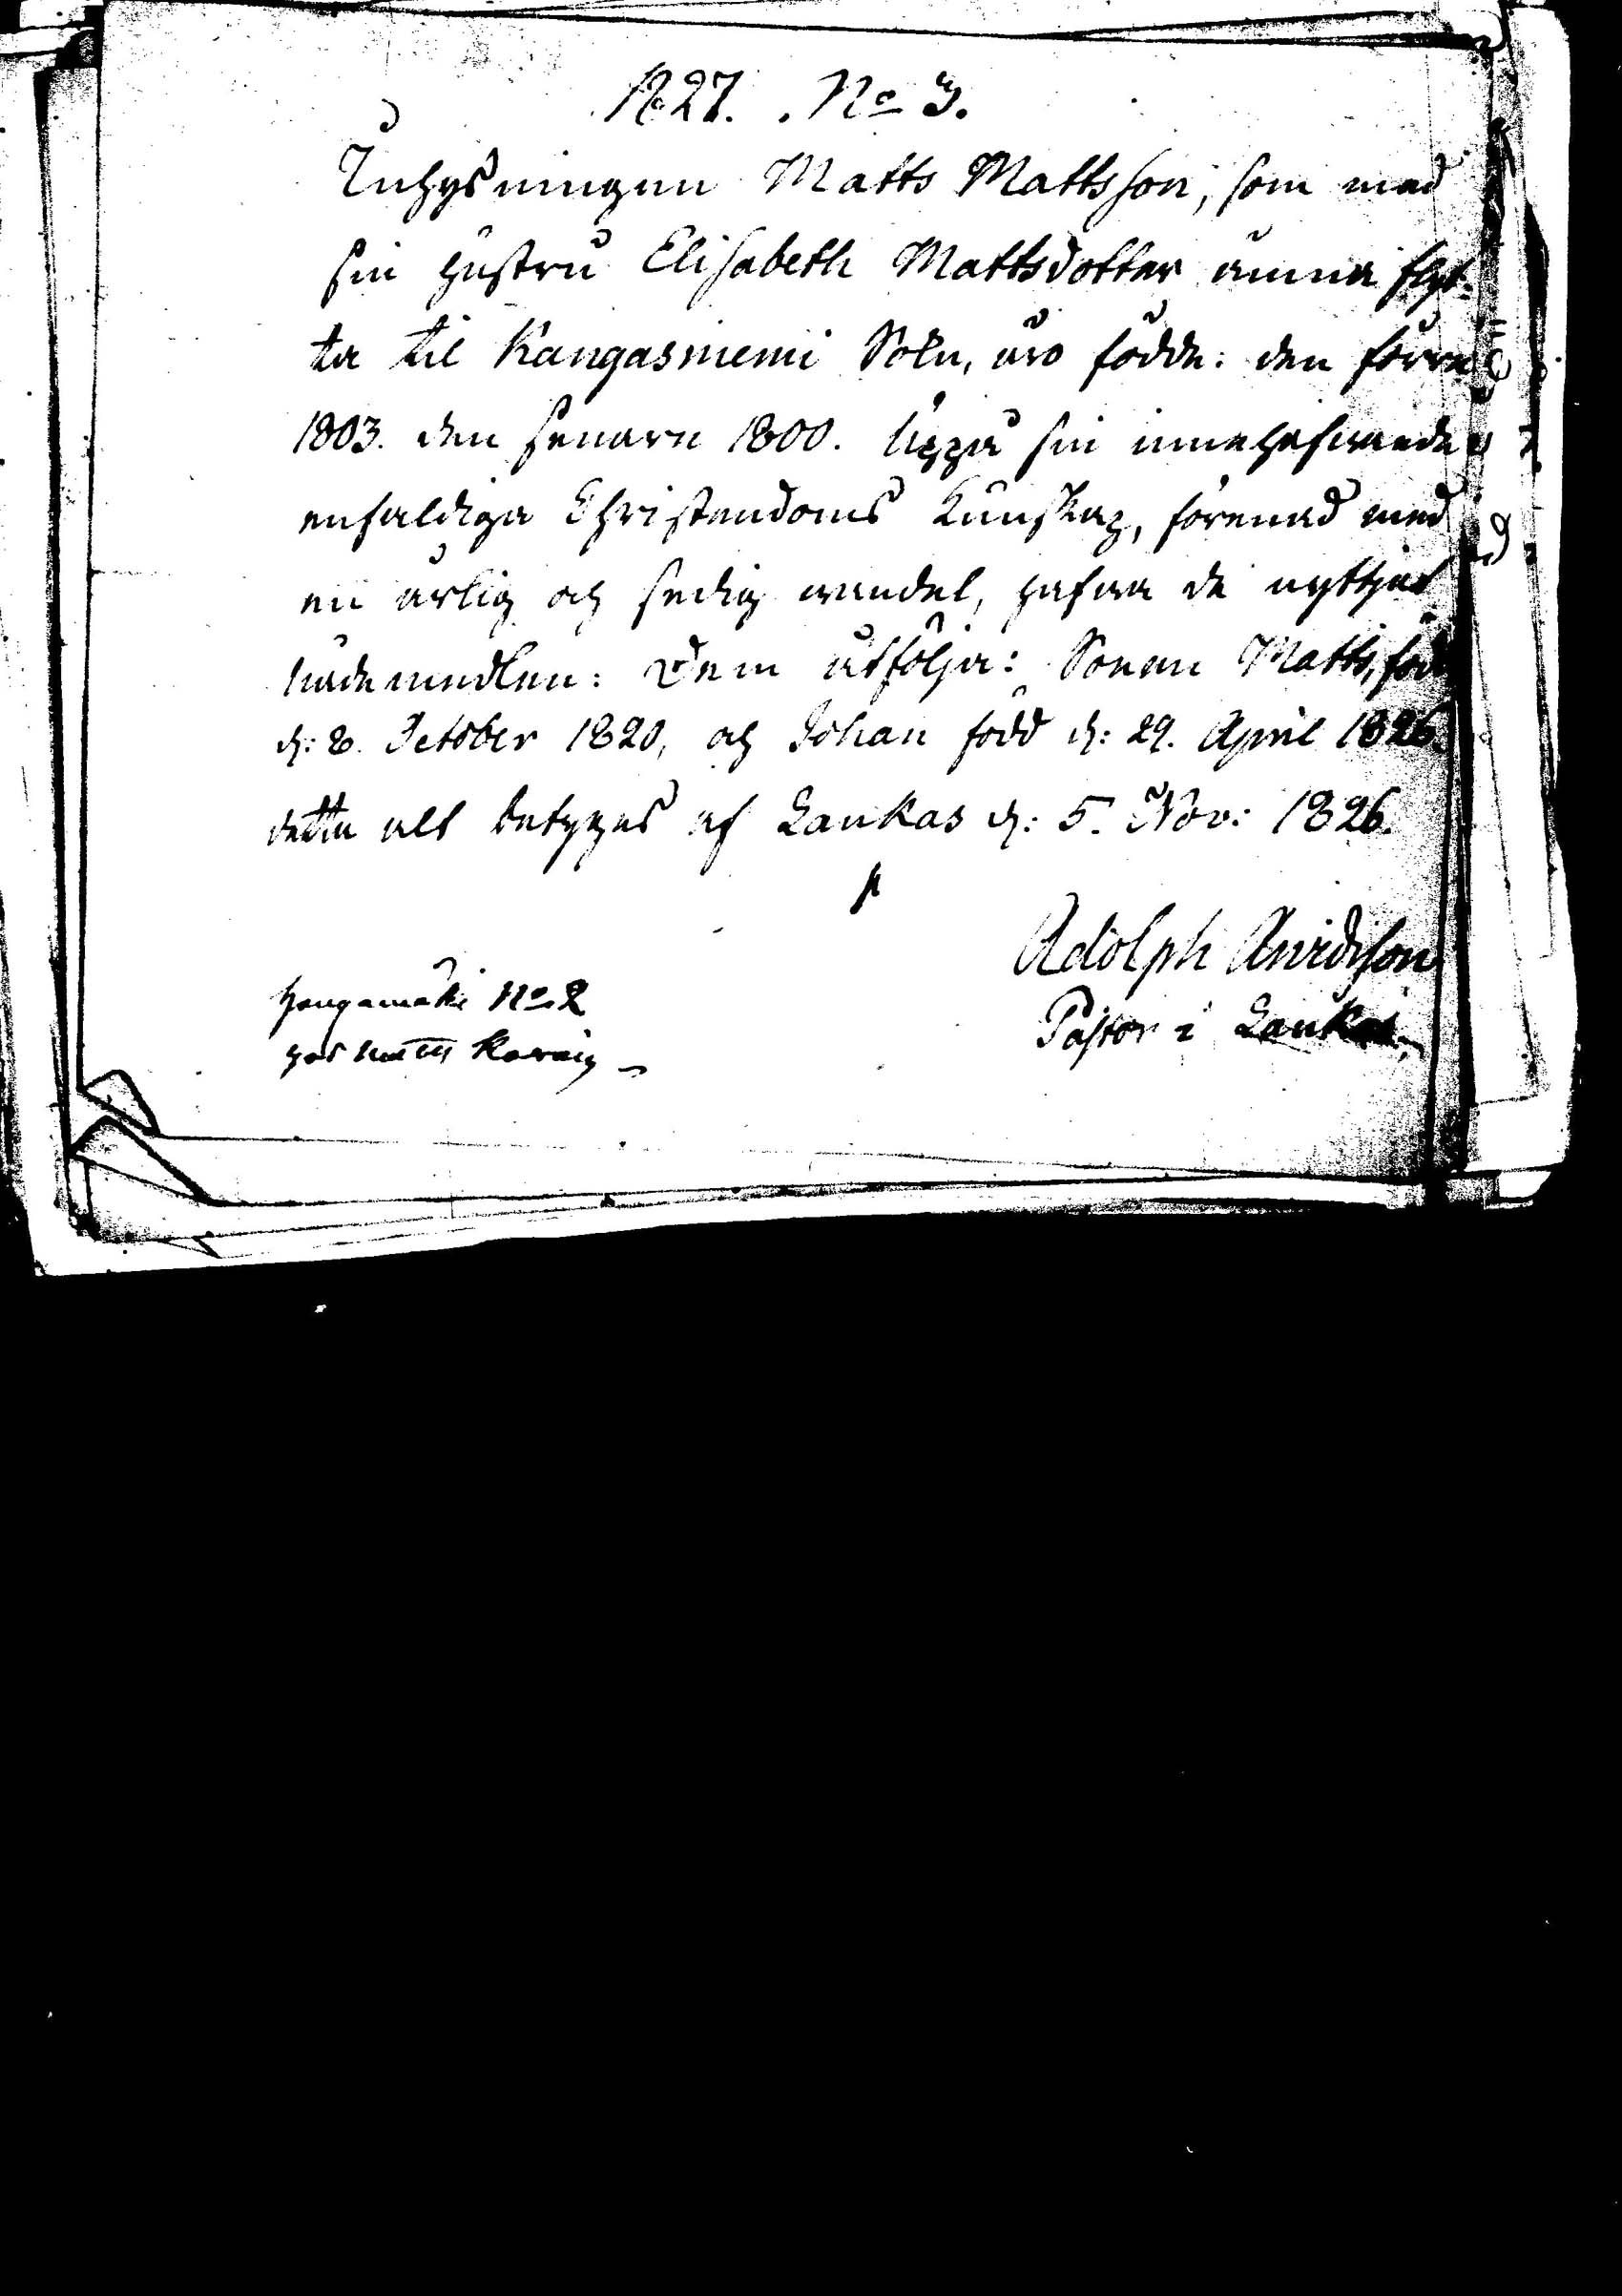 1827. No 3.
Inhysningen Matts Mattsson, som med
sin hustru Elisabeth Mattsdotter ämna flyt-
ta til Kangasniemi Sokn, äro födde: den förre
1803. den senare 1800. Uppå sin innehafvande
enfaldiga Christendoms kunskap, förenad med
en ärlig och sedig wandel, hafva de nyttjat
nådemedlen: Dem åtfölja: Sonen Matts, född
d: 8. October 1820, och Johan född d: 29. April 1826.
detta alt betygas af Laukas d: 5. Nov: 1826.
Adolph Arvidsson
Pastor i Laukas
Hongamäki No 2
hos Matts